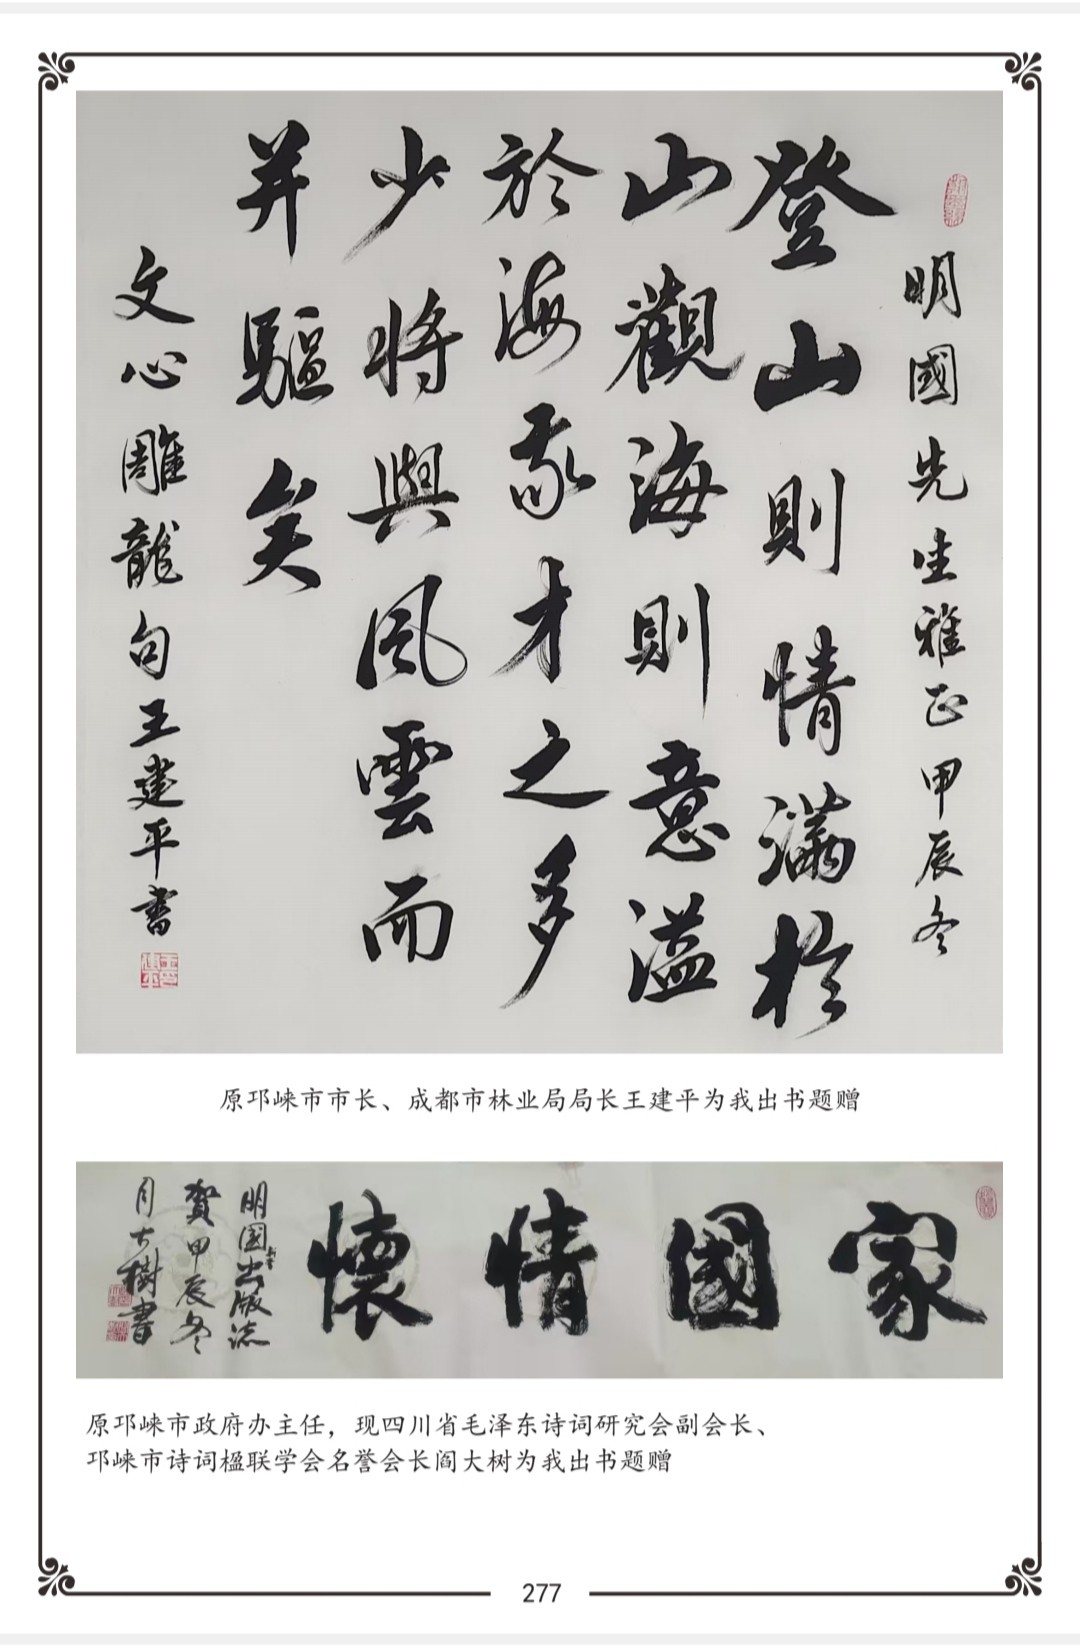 明國先生雅正甲辰冬
登山則情滿於
山觀海則意溢
於海我才之多
少將與風雲而
并驅矣
文心雕龍句王建平書
原邛崃市市长、成都市林业局局长王建平为我出书题赠
家國情懷
明國出版誌
賀甲辰冬
樹書
原邛崃市政府办主任，现四川省毛泽东诗词研究会副会长、
邛崃市诗词楹联学会名誉会长阎大树为我出书题赠
277